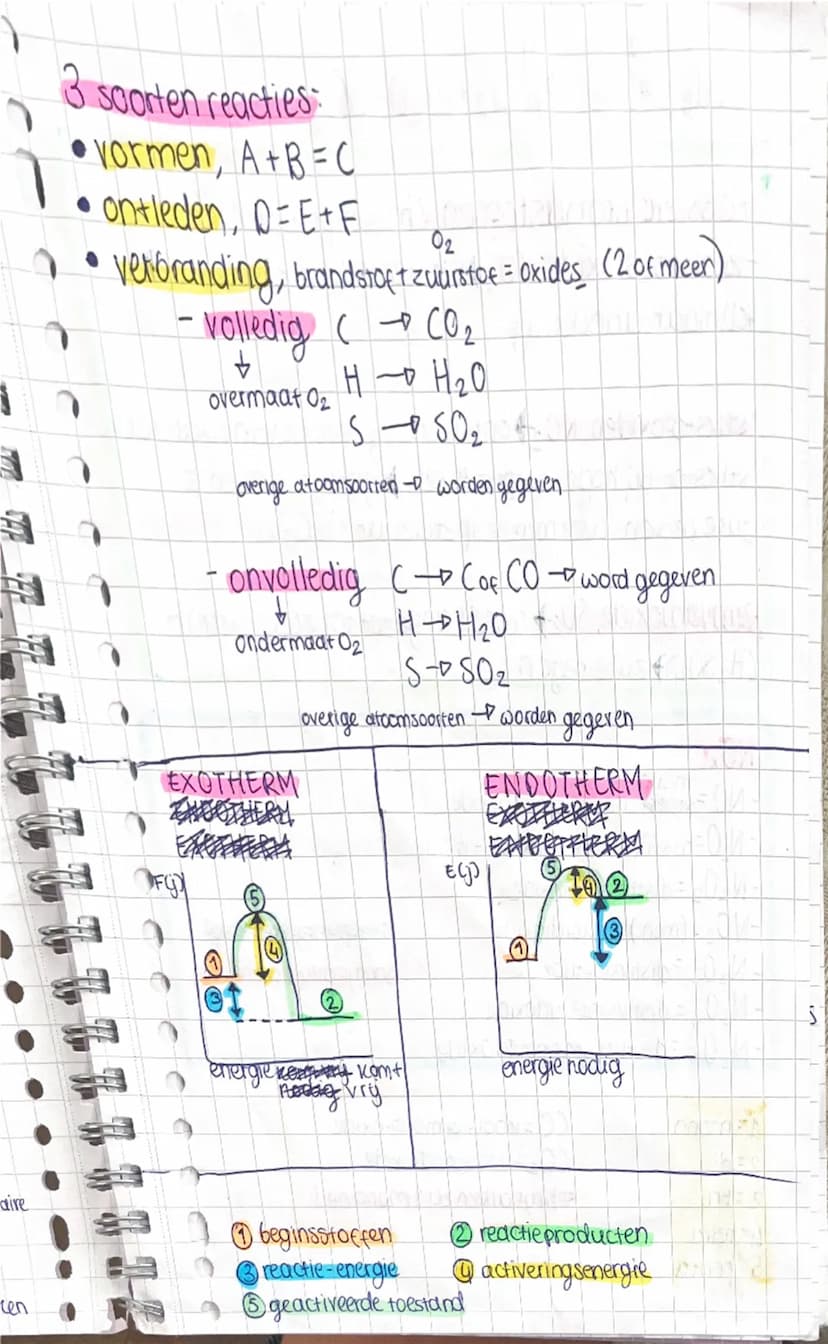 3 soorten reacties:
• vormen, A + B = C
• ontleden, D = E + F
O₂
• verbranding, brandstof + zuurstof = oxides (2 of meer)
- volledig C → CO₂
↓
overmaat O₂ H → H₂O
S → SO₂
overige atoomsoorten → worden gegeven
- onvolledig C → C of CO → word gegeven
↓
ondermaat O₂ H → H₂O
S → SO₂
overige atoomsoorten → worden gegeven
EXOTHERM
E(j)
5
1
4
3
2
energie komt
vrij
ENDOTHERM
E(j)
5
4
2
1
3
energie nodig
1 beginsstoffen 2 reactieproducten
3 reactie-energie 4 activeringsenergie
5 geactiveerde toestand
aire
s